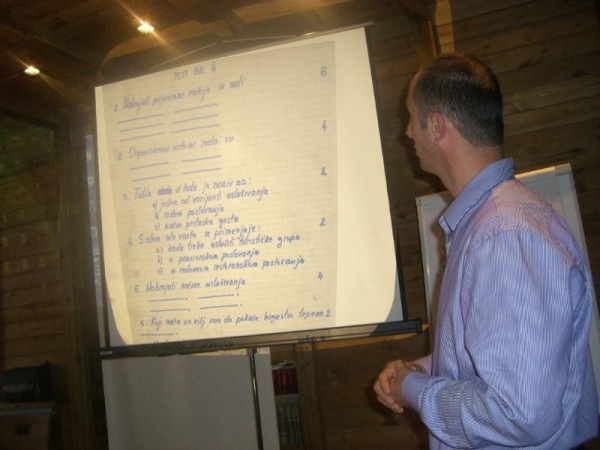 TEST BR. 4
1. Nabrojati pripremne radnje u sali 6
2. Organizacioni sistemi rada su 4
3. Table d hote je naziv za: 2
a) jedna od varijanti usluživanja
b) sistem poslovanja
c) način prilaska gosta
4. Sistem ala carte se primenjuje: 2
a) kada treba uslužiti turističke grupe
b) u pansionskom poslovanju
c) u redovnom restoranskom poslovanju
5. Nabrojati načine usluživanja 4
6. Koji način za cilj ima da pokaže bogastvo trpeze 2